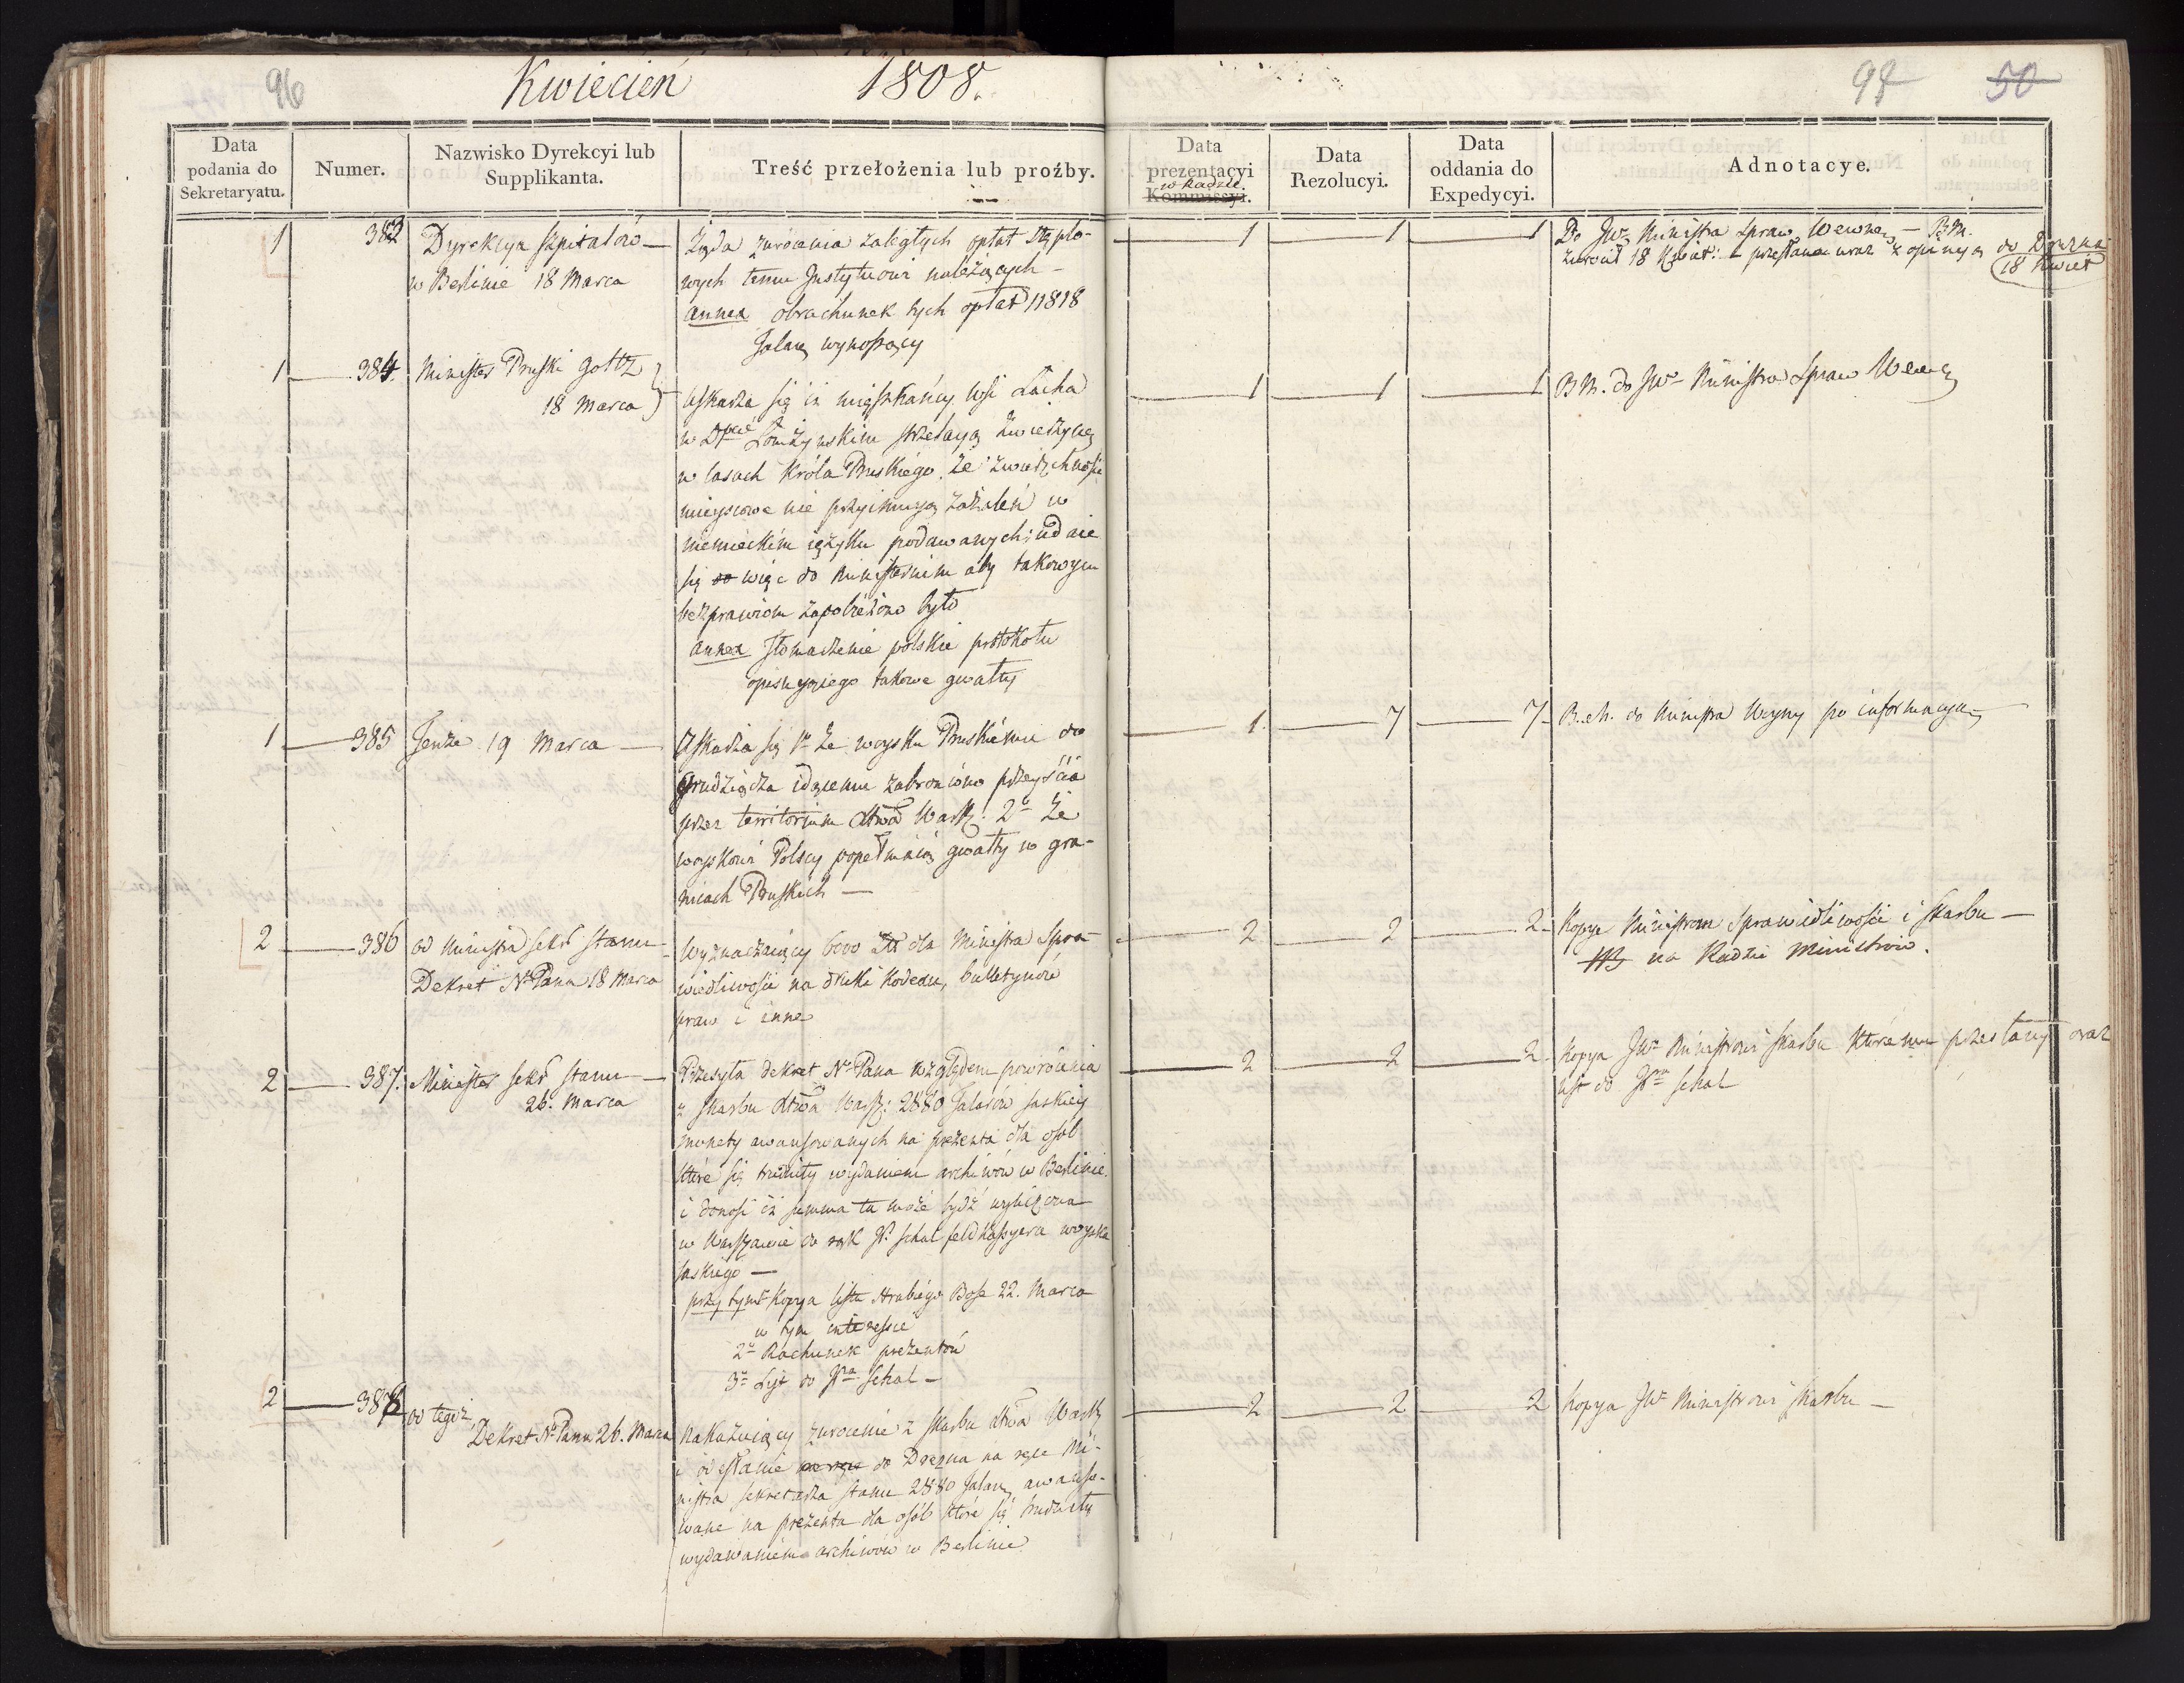 96
Kwiecień 1808.
98 50
Data podania do Sekretaryatu.
Numer.
Nazwisko Dyrekcyi lub Supplikanta.
Treść przełożenia lub proźby.
Data prezentacyi w Radzie. Kommissyi.
Data Rezolucyi.
Data oddania do Expedycyi.
Adnotacye.
1 383 Dyrekcya szpitalów
w Berlinie 18 Marca
Żąda zwrócenia zaległych opłat stęplo-
wych temu Instytutowi należących —
annex obrachunek tych opłat 11818
Talar. wynoszący
1 1 1
Do JW. Ministra Spraw Wewnę. — BM.
zwrócił 18 Kwiet: przesłane wraz z opinią do Drezna
18 Kwiet
1 384. Minister Pruski Goltz
18 Marca
Uskarża się iż mieszkańcy wsi Łacha
w Dpcie Łomżyńskim strzelają zwierzynę
w lasach Króla Pruskiego, że zwierzchności
mieyscowe nie przyimują zażaleń w
niemieckim ięzyku podawanych; udaie
się więc do Ministerium aby takowym
bezprawiom zapobieżono było
annex tłomaczenie polskie protokołu
opisuiącego takowe gwałty
1 1 1
BM. do JW. Ministra Spraw Wewn.
1 385 Tenże 19 Marca —
Uskarża się 1o że woysku Pruskiemu do
Grudziądza idącemu zabroniono przeyścia
przez territorium Xtwa Warsz: 2o Że
woyskowi Polscy popełniaią gwałty w gra-
nicach Pruskich —
1. 7 7
B.M. do Ministra Woyny po informacyą —
2 386 od Ministra Sekr Stanu
Dekret N. Pana 18 Marca
Wyznaczaiący 6000 Zł dla Ministra Spra-
wiedliwości na druki Kodexu, bulletynów
praw i inne
2 2 2
Kopye Ministrom Sprawiedliwości i Skarbu —
na Radzie Ministrów.
2 387. Minister Sekr Stanu —
26. Marca
Przesyła dekret N. Pana względem powrócenia
z skarbu Xtwa Warsz: 2880 Talarów saskiey
monety awansowanych na prezenta dla osób
które się trudniły wydaniem archiwów w Berlinie.
i donosi iż summa ta może bydź wyliczona
w Warszawie do rąk P. Schal feldkassyera woyska
saskiego —
przy tym 1o Kopya listu Hrabiego Bose 22. Marca
w tym interessie
2o Rachunek prezentów
3o List do Pna Schal —
2 2 2
Kopya JW. Ministrowi Skarbu któremu przesłany oraz
list do Pna Schal
2 388 od tegoż
Dekret N. Pana 26. Marca
Nakazuiący zwrócenie z skarbu Xtwa Warsz
i odesłanie do Drezna na ręce Mi-
nistra Sekretarza Stanu 2880 Talar. awanso-
wane na prezenta dla osób które się trudniły
wydawaniem archiwów w Berlinie
2 2 2
Kopya JW. Ministrowi Skarbu —